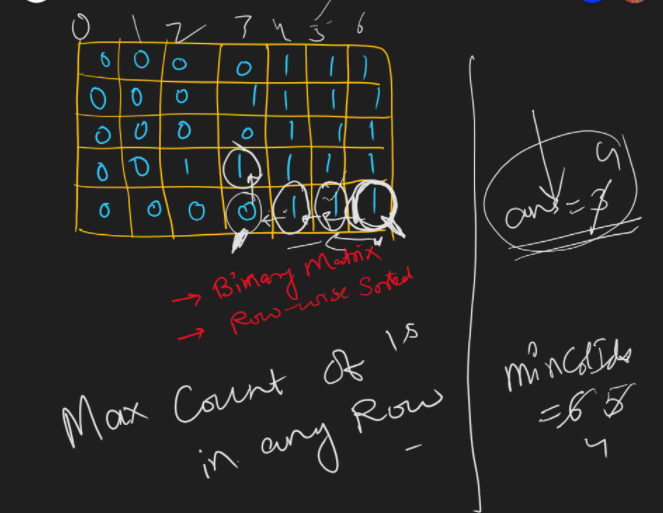 0 1 2 3 4 5 6
0 0 0 0 1 1 1
0 0 0 1 1 1 1
0 0 0 0 1 1 1
0 0 1 1 1 1 1
0 0 0 0 1 1 1
→ Binary Matrix
→ Row-wise Sorted
Max Count of 1s
in any Row
4
ans = 3
minColIdx
= 6 5
4